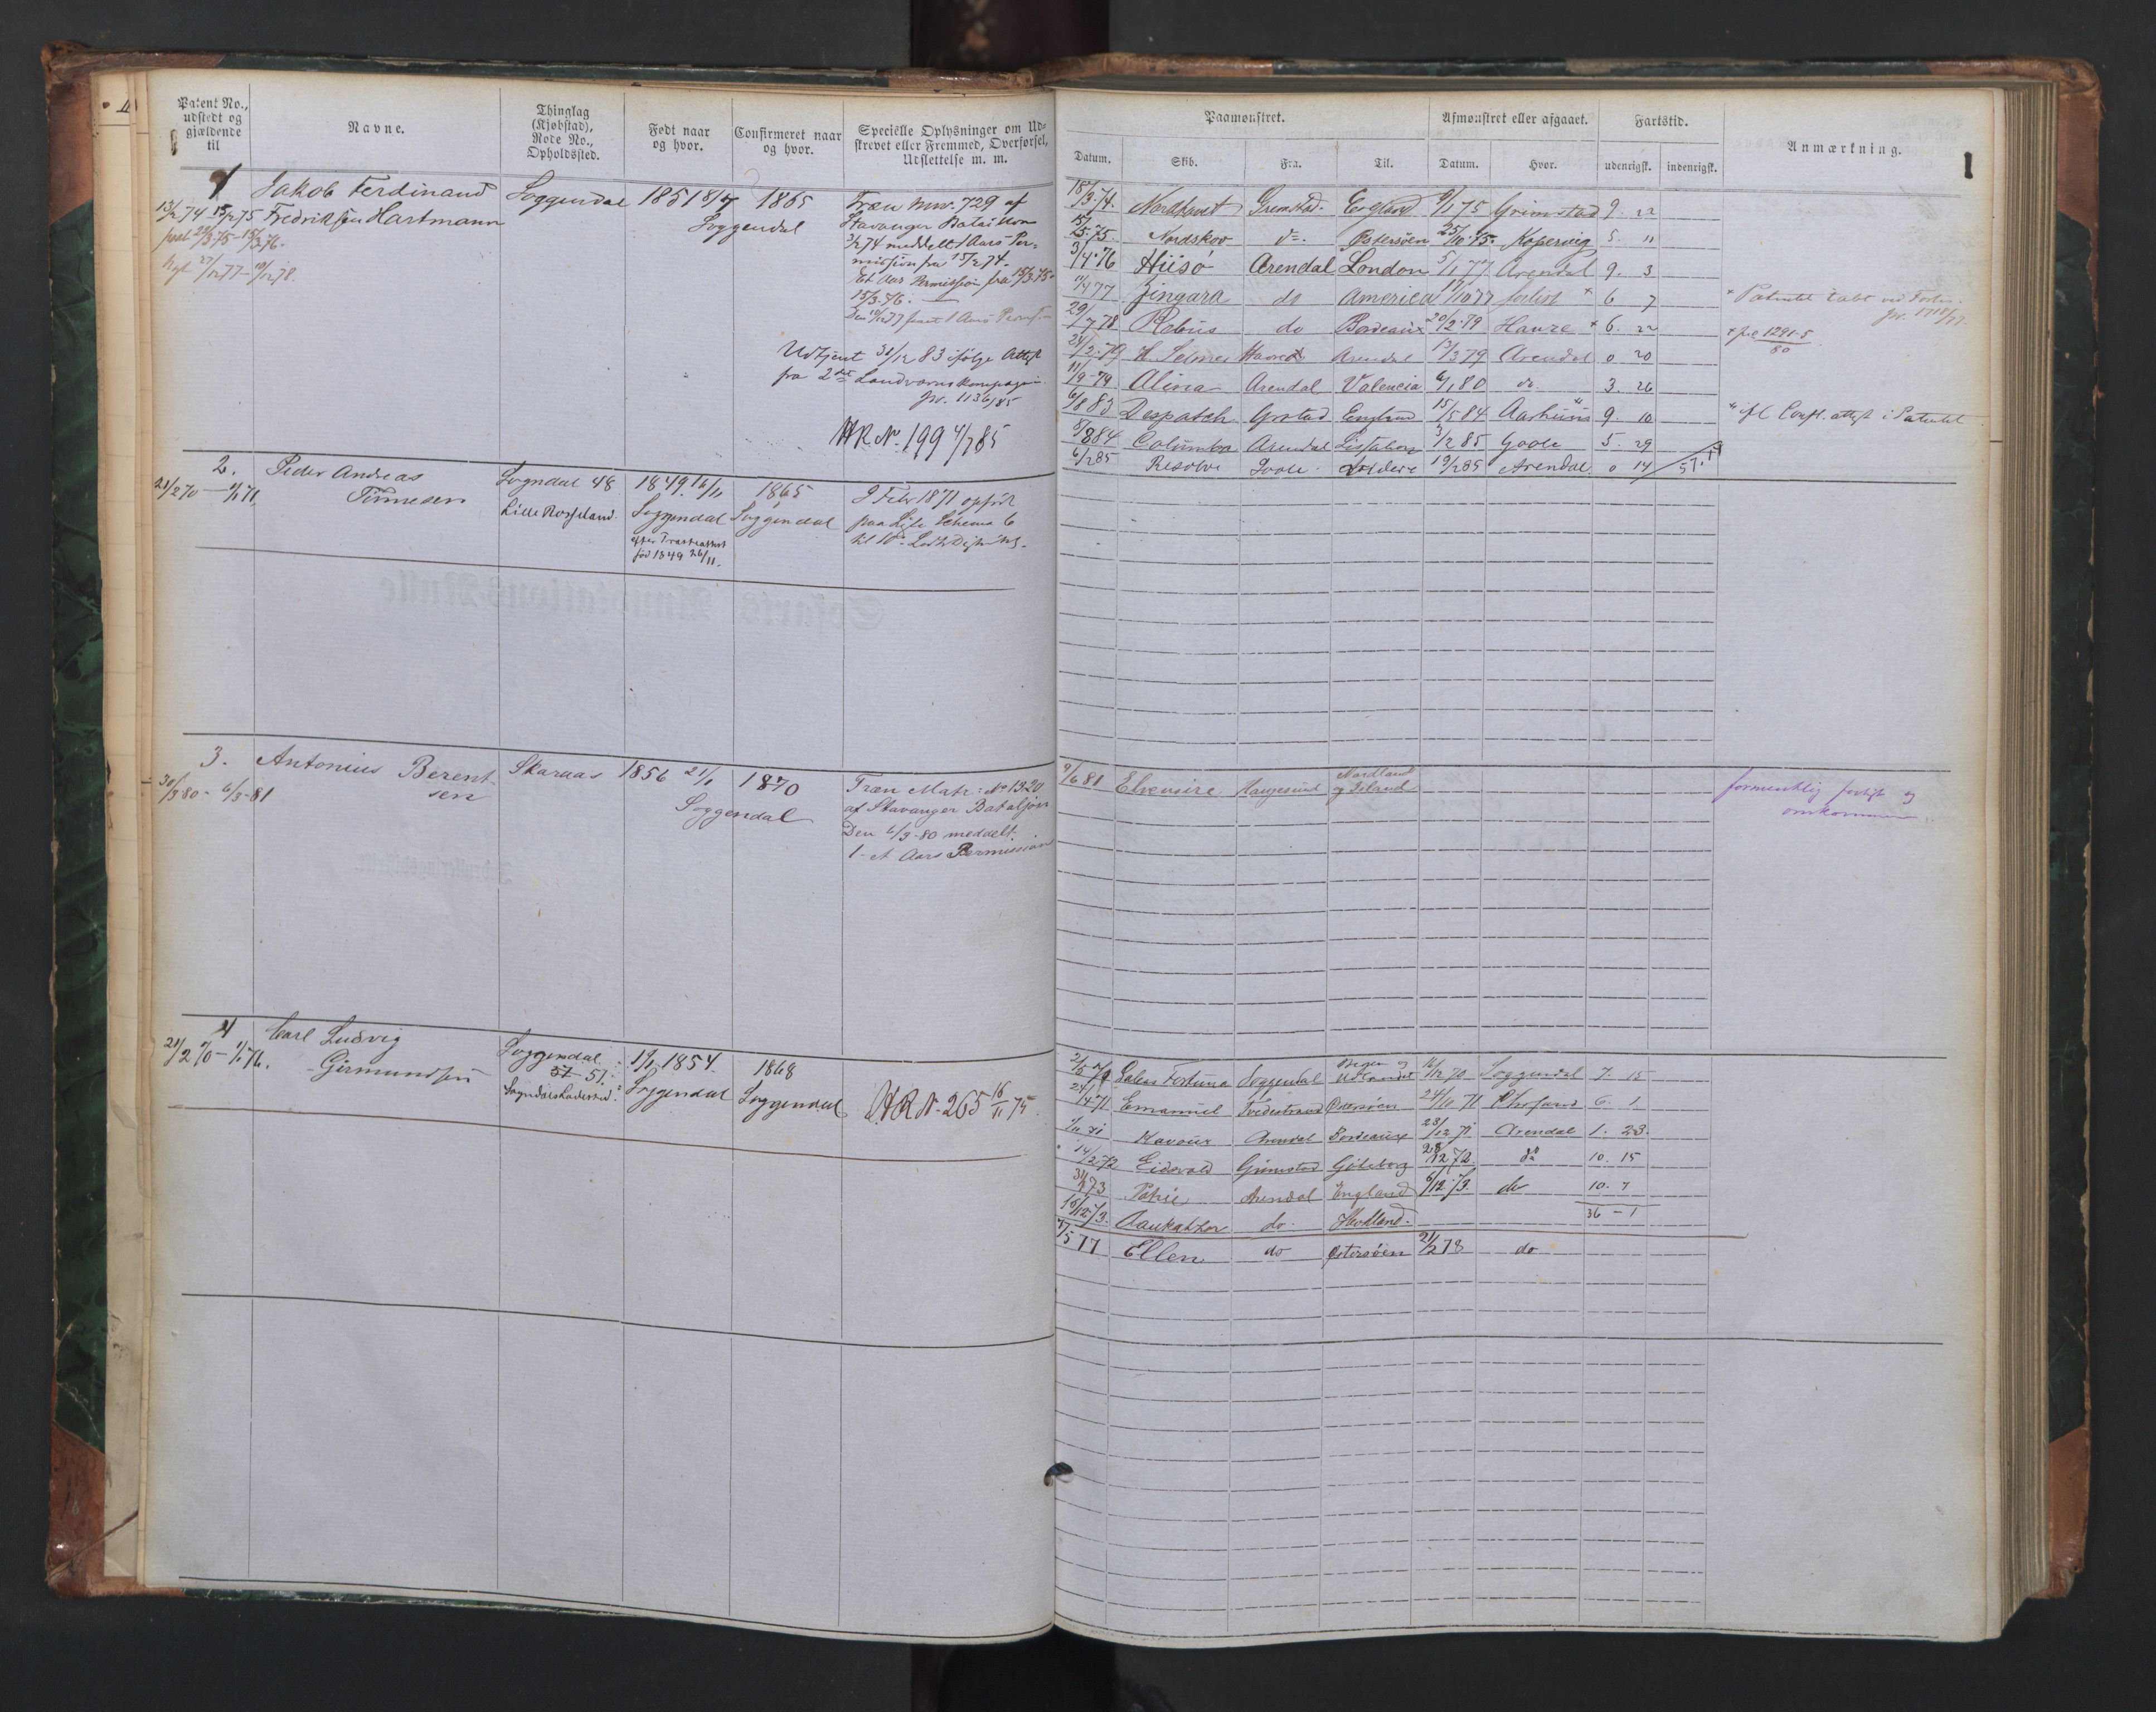 Patent No.,
udstedt og
gjældende
til
Navne.
Thinglag
(Kjøbstad),
Rode No.,
Opholdssted.
Født naar
og hvor.
Confirmeret naar
og hvor.
Specielle Oplysninger om Ud-
skrevet eller Fremmed, Overførsel,
Udslettelse m. m.
1
Jakob Ferdinand
Fredriksen Hartmann
13/2 74 15/2 75
27/12 77 - 19/12 78.
Soggendal
1851 8/7
Soggendal
1865
Træn Mnr. 729 af
Stavanger Bataillon
3/2 74 meddelt 1 Aars Per-
mission fra 15/2 74.
Et Aars Permission fra 15/3 75
15/3 76.
Udtjent 31/12 83 ifølge Attest
fra 2det Landværnskompagni
jnr. 1136/85
HR No. 199 4/7 85
2.
21/2 70 - 1/1 71.
Peder Andreas
Tønnesen
Sogndal 48
Lille Rosseland.
1849. 16/11
Soggendal
efter Præsteattest
fød 1849 26/11.
1865
Soggendal
I Febr 1871 opført
paa Liste Schema 6
3.
30/3 80 - 6/3 81
Antonius Berent
sen
Skaraas
1856 21/1
Soggendal
1870
Træn Matr: No 1320
af Stavanger Bataljon
Den 6/3-80 meddelt
1-et Aars Permission
4
21/2 70 - 1/1 76.
Carl Ludvig
Girmundsen
Soggendal
57 51.
Sogndals Ladested
1/1 1854.
Soggendal
1868
Soggendal
HR No. 265 16/11 75.
Paamønstret.
Afmønstret eller afgaaet.
Fartstid.
Anmærkning.
1
Datum.
Skib.
Fra.
Til.
Datum.
Hvor.
udenrigsk.
indenrigsk.
18/3 74. Nordhavet Grimstad. England 9/1 75 Grimstad 9. 22
15/5 75. Nordskov do. Østersøen 25/10 75. Kopervig 5. 11
3/4 76 Hiisö Arendal London 5/1 77 Arendal 9. 3
11/4 77 Zingara do America 17/10 77 forlist × 6 7
× Patentet tabt ved Forlis.
29/7 78 Rebus do Bordeaux 20/2 79 Havre × 6. 22
24/2 79 H. Selmer Havre Arendal 13/3 79 Arendal 0 20
11/9 79 Alina Arendal Valencia 6/1 80 do. 3. 26
6/8 83 Despatch Grstad England 15/5 84 Aarhuus 9. 10
5/8 84 Columba Arendal Lissabon 3/2 85 Goole 5. 29
6/2 85 Resolve Goole 19/2 85 Arendal 0 14
9/6 81 Elvensire Haugesund Nordland
og Island
formentlig forlist og
omkommen
2/5 70 Galeas Fortuna Soggendal Bergen og
Udlandet 16/12 70 Soggendal 7. 15
24/4 71 Emanuel Tvedestrand Østersøen 24/10 71 Chrsand 6. 1.
1/11 71 Kavour Arendal Bordeaux 23/12 71 Arendal 1. 23.
14/2 72 Eidsvold Grimstad Göteborg 28/12 72. do 10. 15
31/1 73 Arendal England 6/12 73. do 10. 7
36 - 1
15/12 73. do.
7/5 77 Ellen do Østersøen 21/2 78 do